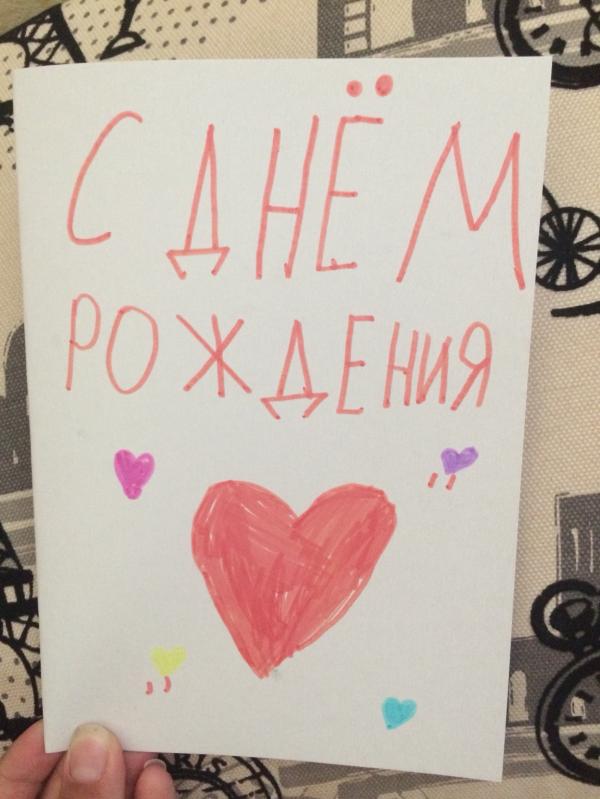 С ДНЁМ
РОЖДЕНИЯ